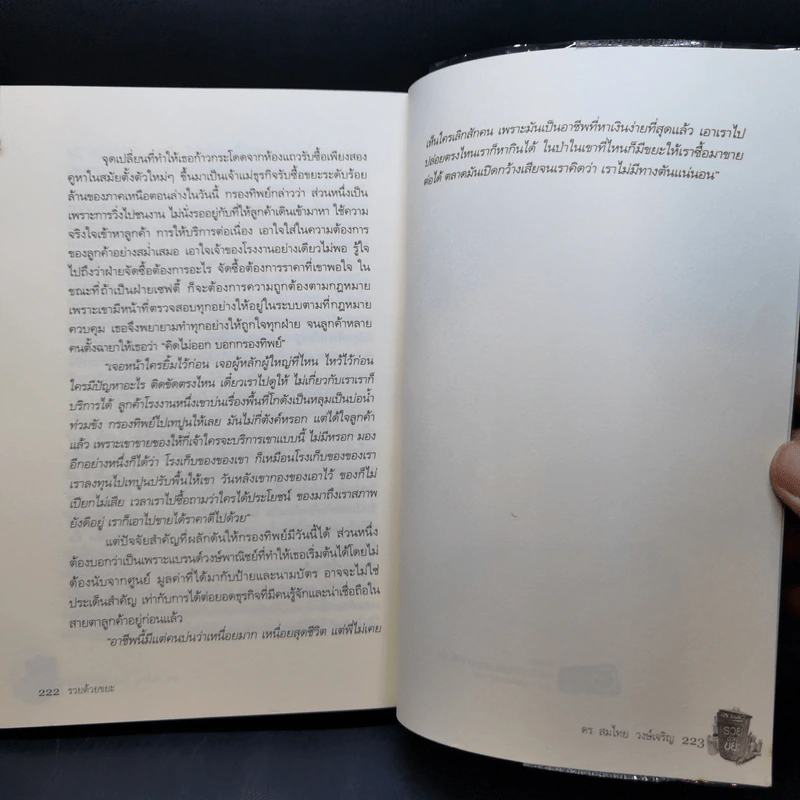 จุดเปลี่ยนที่ทำให้เธอก้าวกระโดดจากห้องแถวรับซื้อเพียงสอง
คูหาในสมัยตั้งตัวใหม่ๆ ขึ้นมาเป็นเจ้าแม่ธุรกิจรับซื้อขยะระดับร้อย
ล้านของภาคเหนือตอนล่างในวันนี้ กรองทิพย์กล่าวว่า ส่วนหนึ่งเป็น
เพราะการวิ่งไปชนงาน ไม่นั่งรออยู่กับที่ให้ลูกค้าเดินเข้ามาหา ใช้ความ
จริงใจเข้าหาลูกค้า การให้บริการต่อเนื่อง เอาใจใส่ในความต้องการ
ของลูกค้าอย่างสม่ำเสมอ เอาใจเจ้าของโรงงานอย่างเดียวไม่พอ รู้ใจ
ไปถึงว่าฝ่ายจัดซื้อต้องการอะไร จัดซื้อต้องการราคาที่เขาพอใจ ใน
ขณะที่ถ้าเป็นฝ่ายเซฟตี้ ก็จะต้องการความถูกต้องตามกฎหมาย
เพราะเขามีหน้าที่ตรวจสอบทุกอย่างให้อยู่ในระบบตามที่กฎหมาย
ควบคุม เธอจึงพยายามทำทุกอย่างให้ถูกใจทุกฝ่าย จนลูกค้าหลาย
คนตั้งฉายาให้เธอว่า "คิดไม่ออก บอกกรองทิพย์"
"เจอหน้าใครยิ้มไว้ก่อน เจอผู้หลักผู้ใหญ่ที่ไหน ไหว้ไว้ก่อน
ใครมีปัญหาอะไร ติดขัดตรงไหน เดี๋ยวเราไปดูให้ ไม่เกี่ยวกับเราเราก็
บริการได้ ลูกค้าโรงงานหนึ่งเขาบ่นเรื่องพื้นที่โกดังเป็นหลุมเป็นบ่อน้ำ
ท่วมขัง กรองทิพย์ไปเทปูนให้เลย มันไม่กี่ตังค์หรอก แต่ได้ใจลูกค้า
แล้ว เพราะเขาขายของให้กี่เจ้าใครจะบริการเขาแบบนี้ ไม่มีหรอก มอง
อีกอย่างหนึ่งก็ได้ว่า โรงเก็บของของเขา ก็เหมือนโรงเก็บของของเรา
เราลงทุนไปเทปูนปรับพื้นให้เขา วันหลังเขากองของเอาไว้ ของก็ไม่
เปียกไม่เสีย เวลาเราไปซื้อถามว่าใครได้ประโยชน์ ของมาถึงเราสภาพ
ยังดีอยู่ เราก็เอาไปขายได้ราคาดีไปด้วย"
แต่ปัจจัยสำคัญที่ผลักดันให้กรองทิพย์มีวันนี้ได้ ส่วนหนึ่ง
ต้องบอกว่าเป็นเพราะแบรนด์วงษ์พาณิชย์ที่ทำให้เธอเริ่มต้นได้โดยไม่
ต้องนับจากศูนย์ มูลค่าที่ได้มากับป้ายและนามบัตร อาจจะไม่ใช่
ประเด็นสำคัญ เท่ากับการได้ต่อยอดธุรกิจที่มีคนรู้จักและน่าเชื่อถือใน
สายตาลูกค้าอยู่ก่อนแล้ว
"อาชีพนี้มีแต่คนบ่นว่าเหนื่อยมาก เหนื่อยสุดชีวิต แต่พี่ไม่เคย
222 รวยด้วยขยะ
เห็นใครเลิกสักคน เพราะมันเป็นอาชีพที่หาเงินง่ายที่สุดแล้ว เอาเราไป
ปล่อยตรงไหนเราก็หากินได้ ในป่าในเขาที่ไหนก็มีขยะให้เราซื้อมาขาย
ต่อได้ ตลาดมันเปิดกว้างเสียจนเราคิดว่า เราไม่มีทางตันแน่นอน"
ดร สมไทย วงษ์เจริญ 223
รวย